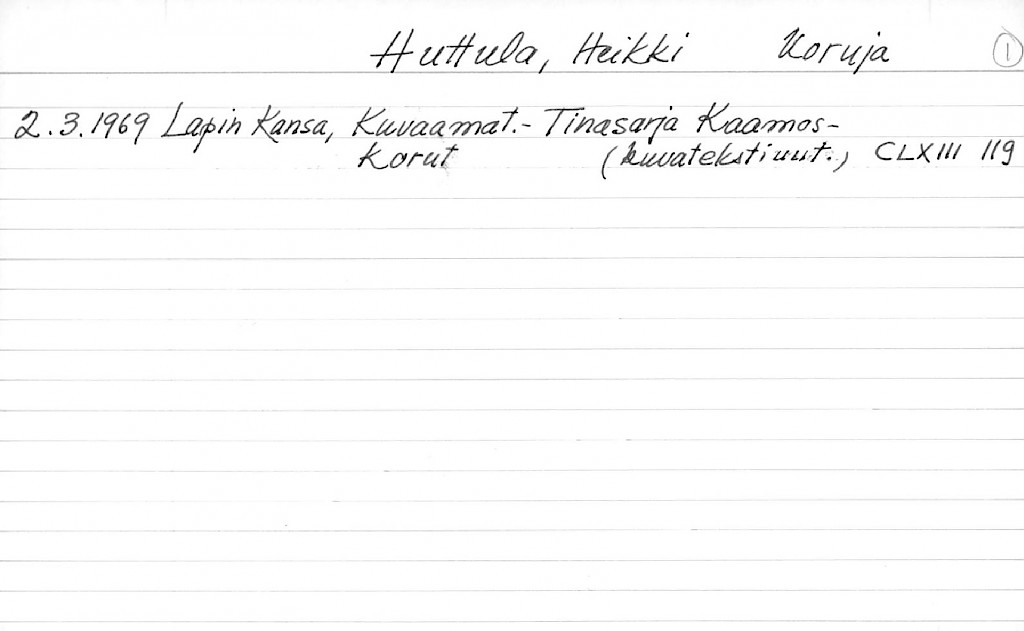 Huttula, Heikki Koruja 1
2.3.1969 Lapin Kansa, Kuvaamat.- Tinasarja Kaamos-
korut (kuvatekstiuut.) CLXIII 119